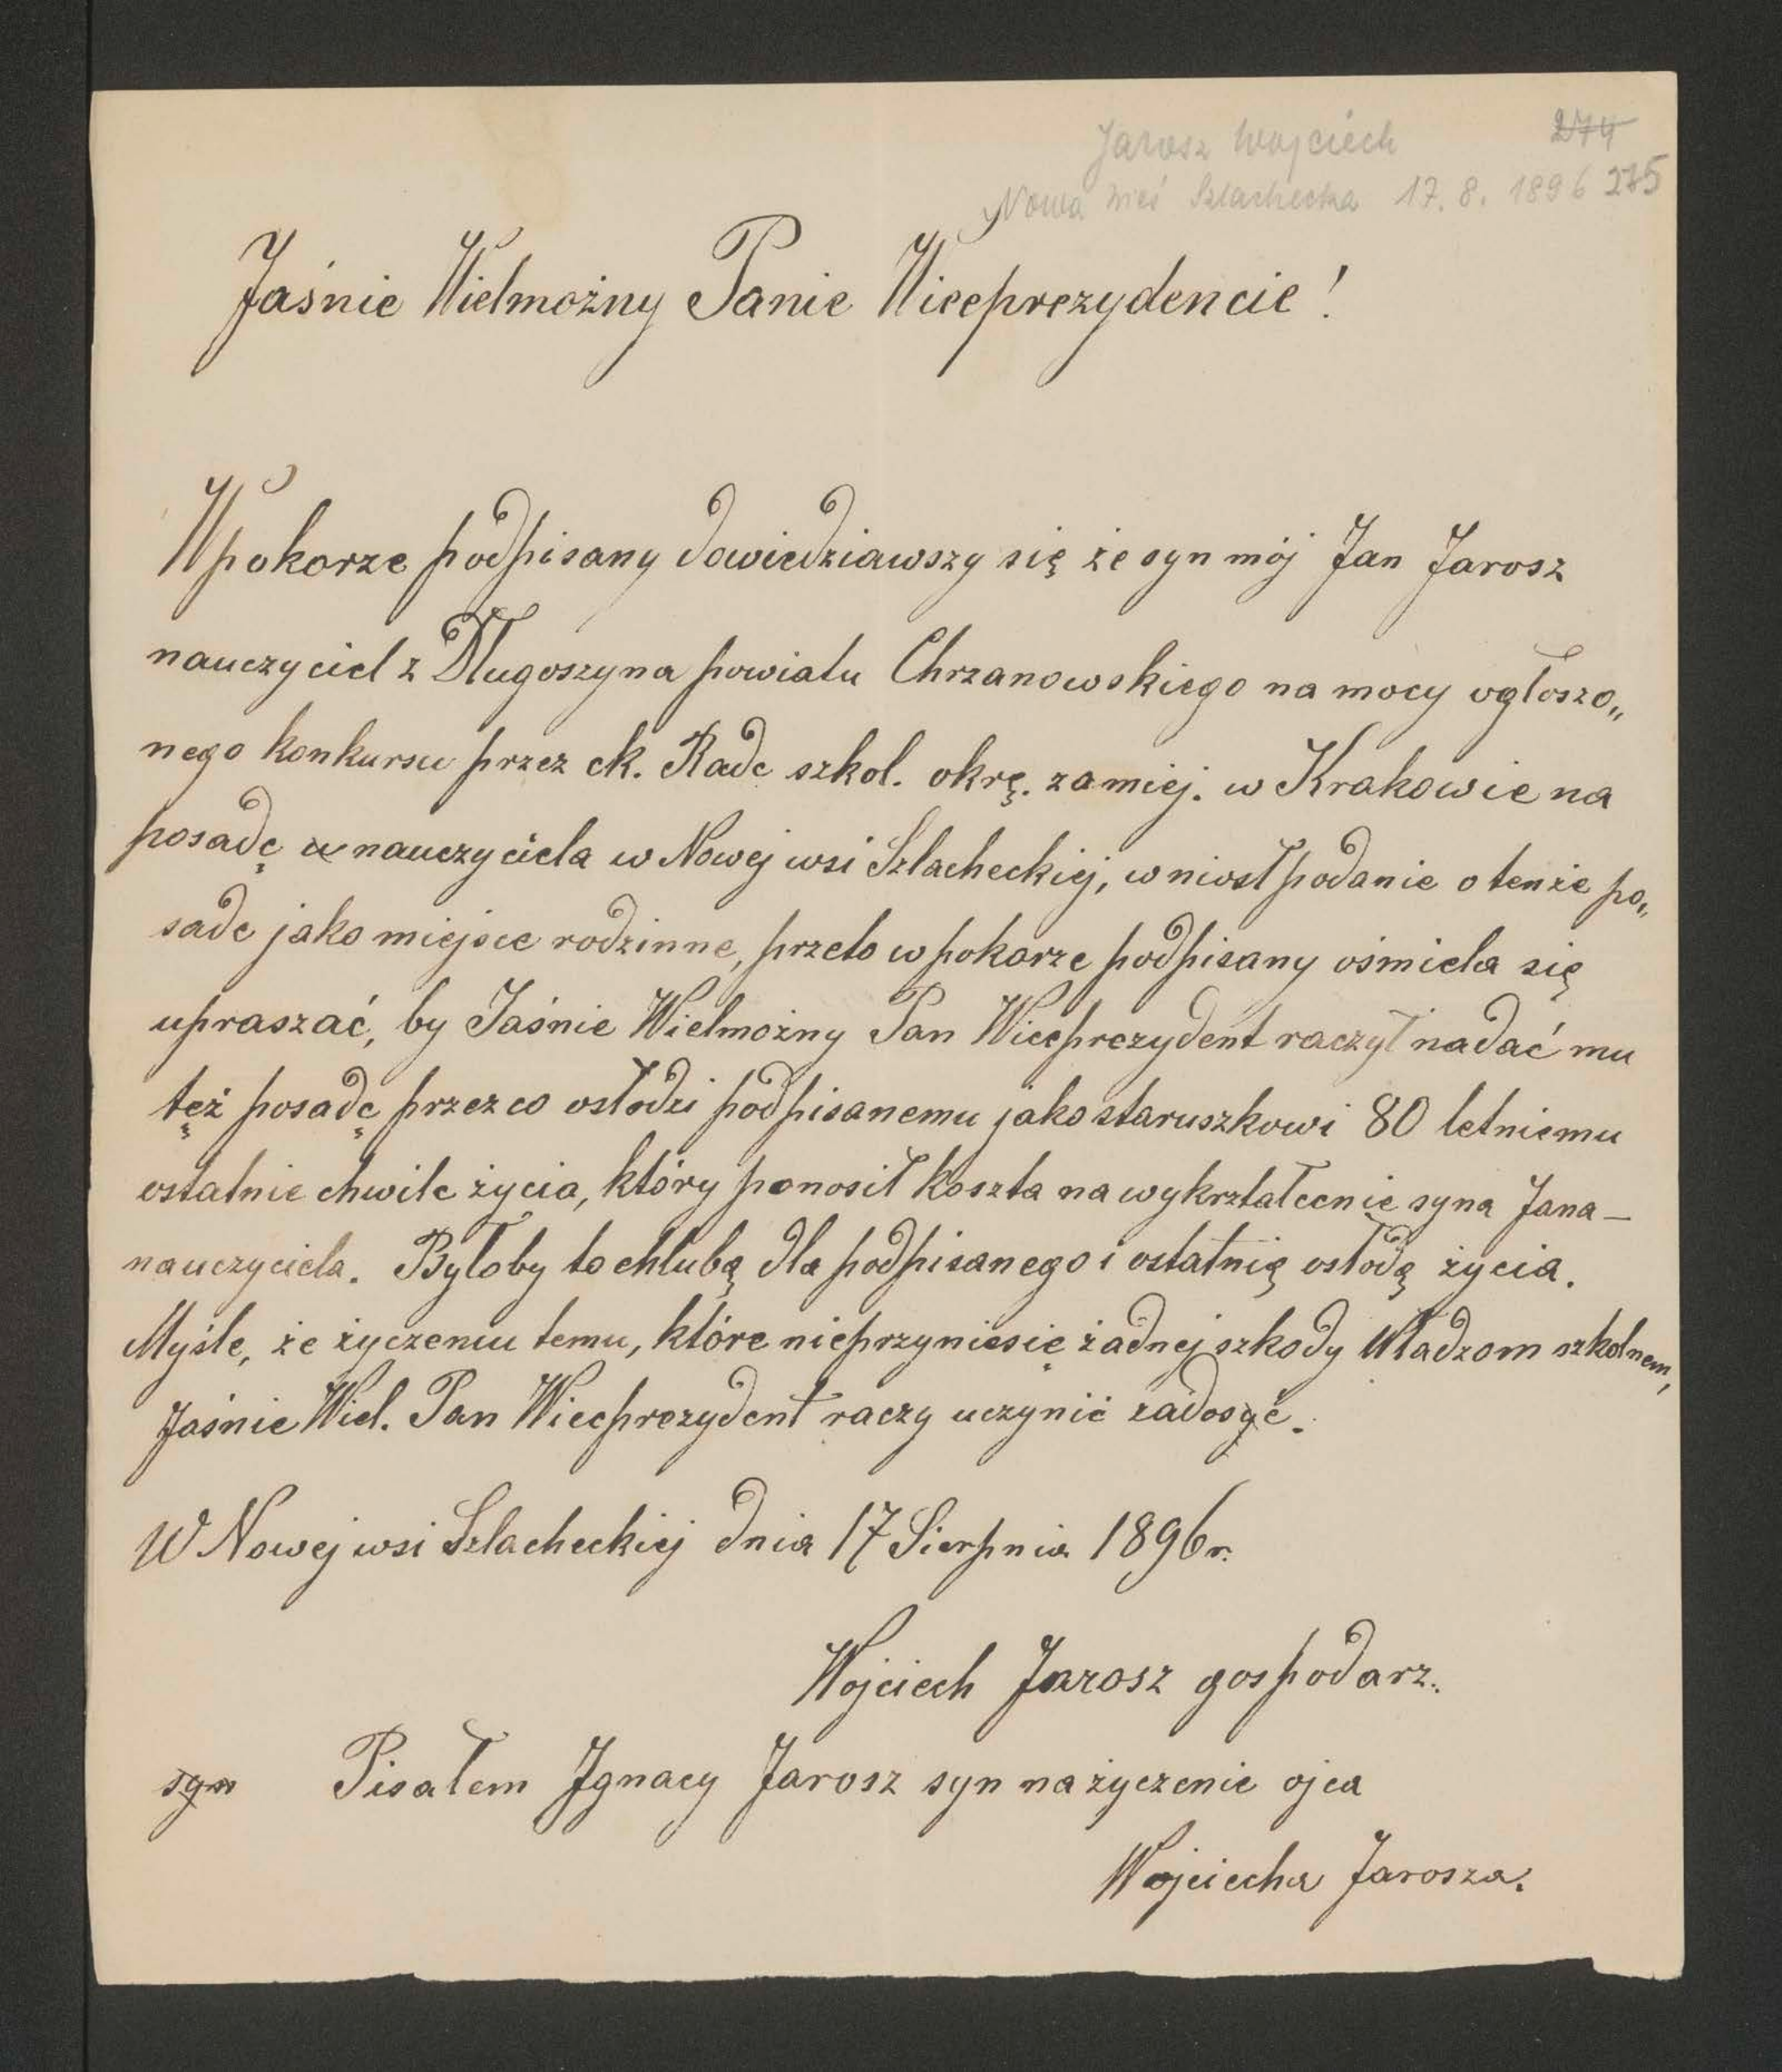 Jarosz Wojciech 274
Nowa Wieś Szlachecka 17. 8. 1896 275
Jaśnie Wielmożny Panie Wiceprezydencie!
W pokorze podpisany dowiedziawszy się że syn mój Jan Jarosz
nauczyciel z Długoszyna powiatu Chrzanowskiego na mocy ogłoszo„
nego konkursu przez ck. Rade szkol. okrę. zamiej. w Krakowie na
posadę nauczyciela w Nowej wsi Szlacheckiej, wniosł podanie o tenże po„
sade jako miejsce rodzinne, przeto w pokorze podpisany ośmiela się
upraszać, by Jaśnie Wielmożny Pan Wiceprezydent raczył nadać mu
też posadę przez co osłodzi podpisanemu jako staruszkowi 80 letniemu
ostatnie chwile życia, który ponosił koszta na wykrztałcenie syna Jana —
nauczyciela. Byłoby to chlubą dla podpisanego i ostatnią osłodą życia.
Myśle, że życzeniu temu, które nieprzyniesie żadnej szkody Władzom szkolnem,
Jaśnie Wiel. Pan Wiceprezydent raczy uczynić zadosyć.
W Nowej wsi Szlacheckiej dnia 17 Sierpnia 1896 r.
Wojciech Jarosz gospodarz.
syn Pisałem Ignacy Jarosz syn na życzenie ojca
Wojciecha Jarosza.